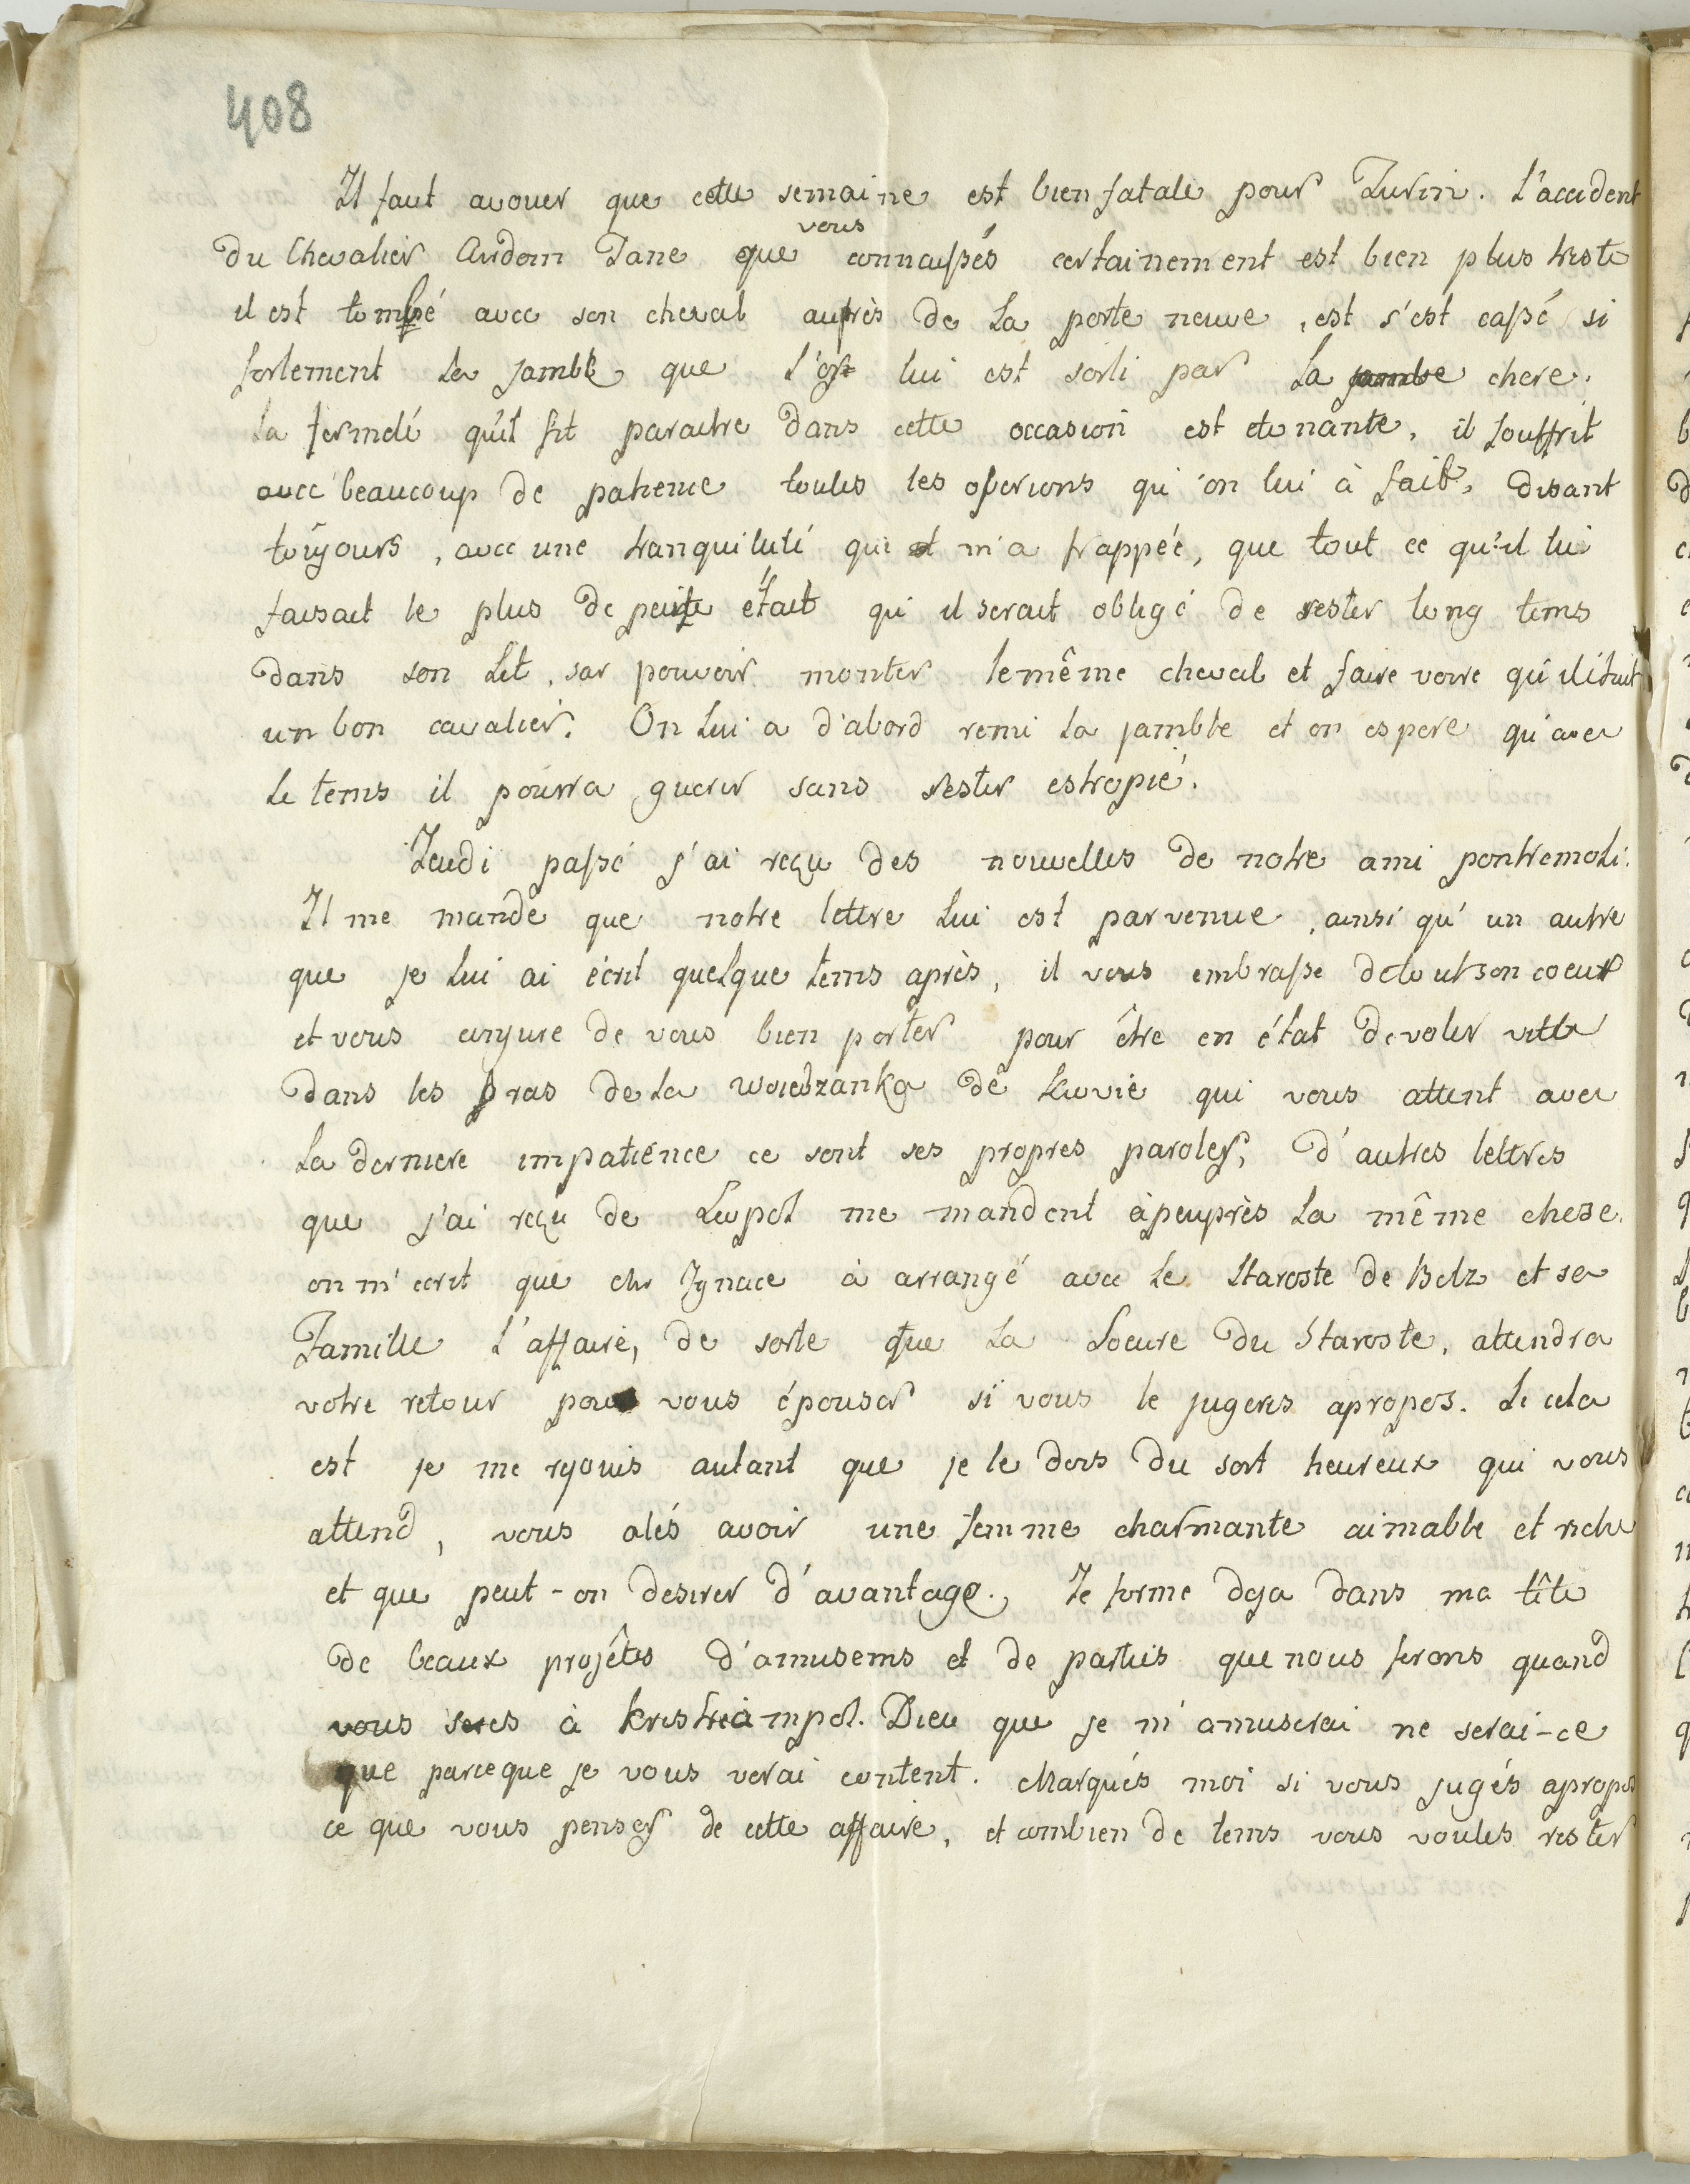 408
Il faut avouer que cette semaine est bien fatale pour Turin. L'accident
du Chevalier Ardoin Tane que vous connaissés certainement est bien plus triste
il est tombé avec son cheval auprès de La porte neuve, est s'est cassé si
fortement La Jamble que l'os lui est sorti par La jambe chere.
La fermeté qu'il fit paraitre dans cette occasion est etonante, il souffrit
avec beaucoup de patience toutes les operions qu'on lui à fait, disant
toûjours, avec une tranquiluté qui m'a frappée, que tout ce qu'il lui
faisait le plus de peine était qu'il serait obligé de rester long tems
dans son Lit, sar pouvoir monter le même cheval et faire voire qu'il était
un bon cavalier. On Lui a d'abord remi La jamble et on espere qu'avec
Le tems il pourra guerir sans rester estropié.
Jeudi passé j'ai reçu des nouvelles de notre ami pontremoli.
Il me mande que notre lettre Lui est parvenue, ainsi qu'un autre
que je Lui ai écrit quelque tems après, il vous embrasse de tout son coeur
et vous conjure de vous bien porter pour être en état de voler vitte
dans les bras de La woiewdzanka de kiovie qui vous attent avec
La derniere impatience ce sont ses propres paroles, d'autres lettres
que j'ai reçu de Leopol me mandent àpeuprès La même chose.
on m'ecrit que Mr Ignace à arrangé avec Le Staroste de Belz et sa
Famille L'affaire, de sorte que La Soeure du Staroste, attendra
votre retour pour vous épouser si vous le jugeres apropos. Si cela
est je me rejouis autant que je le dois du sort heureux qui vous
attend, vous alés avoir une femme charmante aimable et riche
et que peut-on desirer d'avantage. Je forme deja dans ma tête
de beaux projêtes d'amusems et de parties que nous ferons quand
vous seres à kristiampol. Dieu que je m'amuserai ne serai-ce
que parceque je vous verai content. Marqués moi si vous jugés apropos
ce que vous penses de cette affaire, et combien de tems vous voules rester